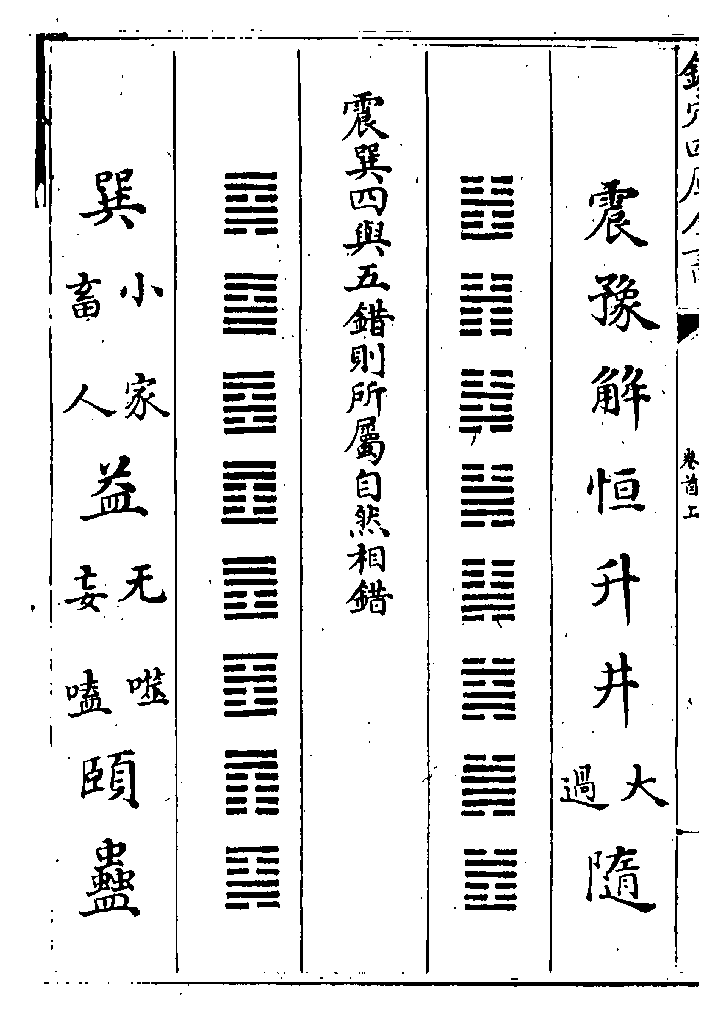 欽定四庫全書
卷首上
震豫解恒升井大過隨
震巽四與五錯則所屬自然相錯
巽小畜家人益无妄噬嗑頤蠱